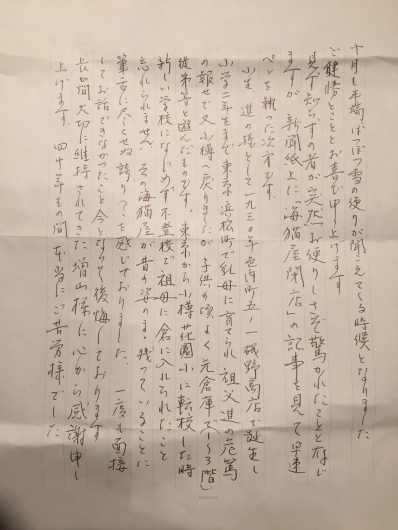 十月も半端ぽつぽつ雪の便りが聞こえてくる時候となりました
ご健勝のこととお喜び申し上げます
見ず知らずの者が突然お便りしさぞ驚かれたことと存じ
ますが 新聞紙上に「海猫屋閉店」の記事を見て早速
ペンを執った次第です。
小生 進の孫として一九三〇年色内町五ノ一磯野商店で誕生し
小学二年生まで東京浜松町で乳母に育てられ 祖父進の危篤
の報せで又小樽へ戻りましたが子供の頃よく元倉庫で(一~三階)
従弟等と遊んだものです。東京から小樽 花園小に転校した時
新しい学校になじめず不登校で祖母に倉に入れられたこと
忘れられません その海猫屋が昔の姿のまゝ残っていることに
筆舌に尽くせぬ誇り?を感じておりました 一度も面接
してお話できなかったこと今となって後悔しております
長い間大切に維持されてきた増山様に心から感謝申し
上げます 四十年もの間本当にご苦労様でした